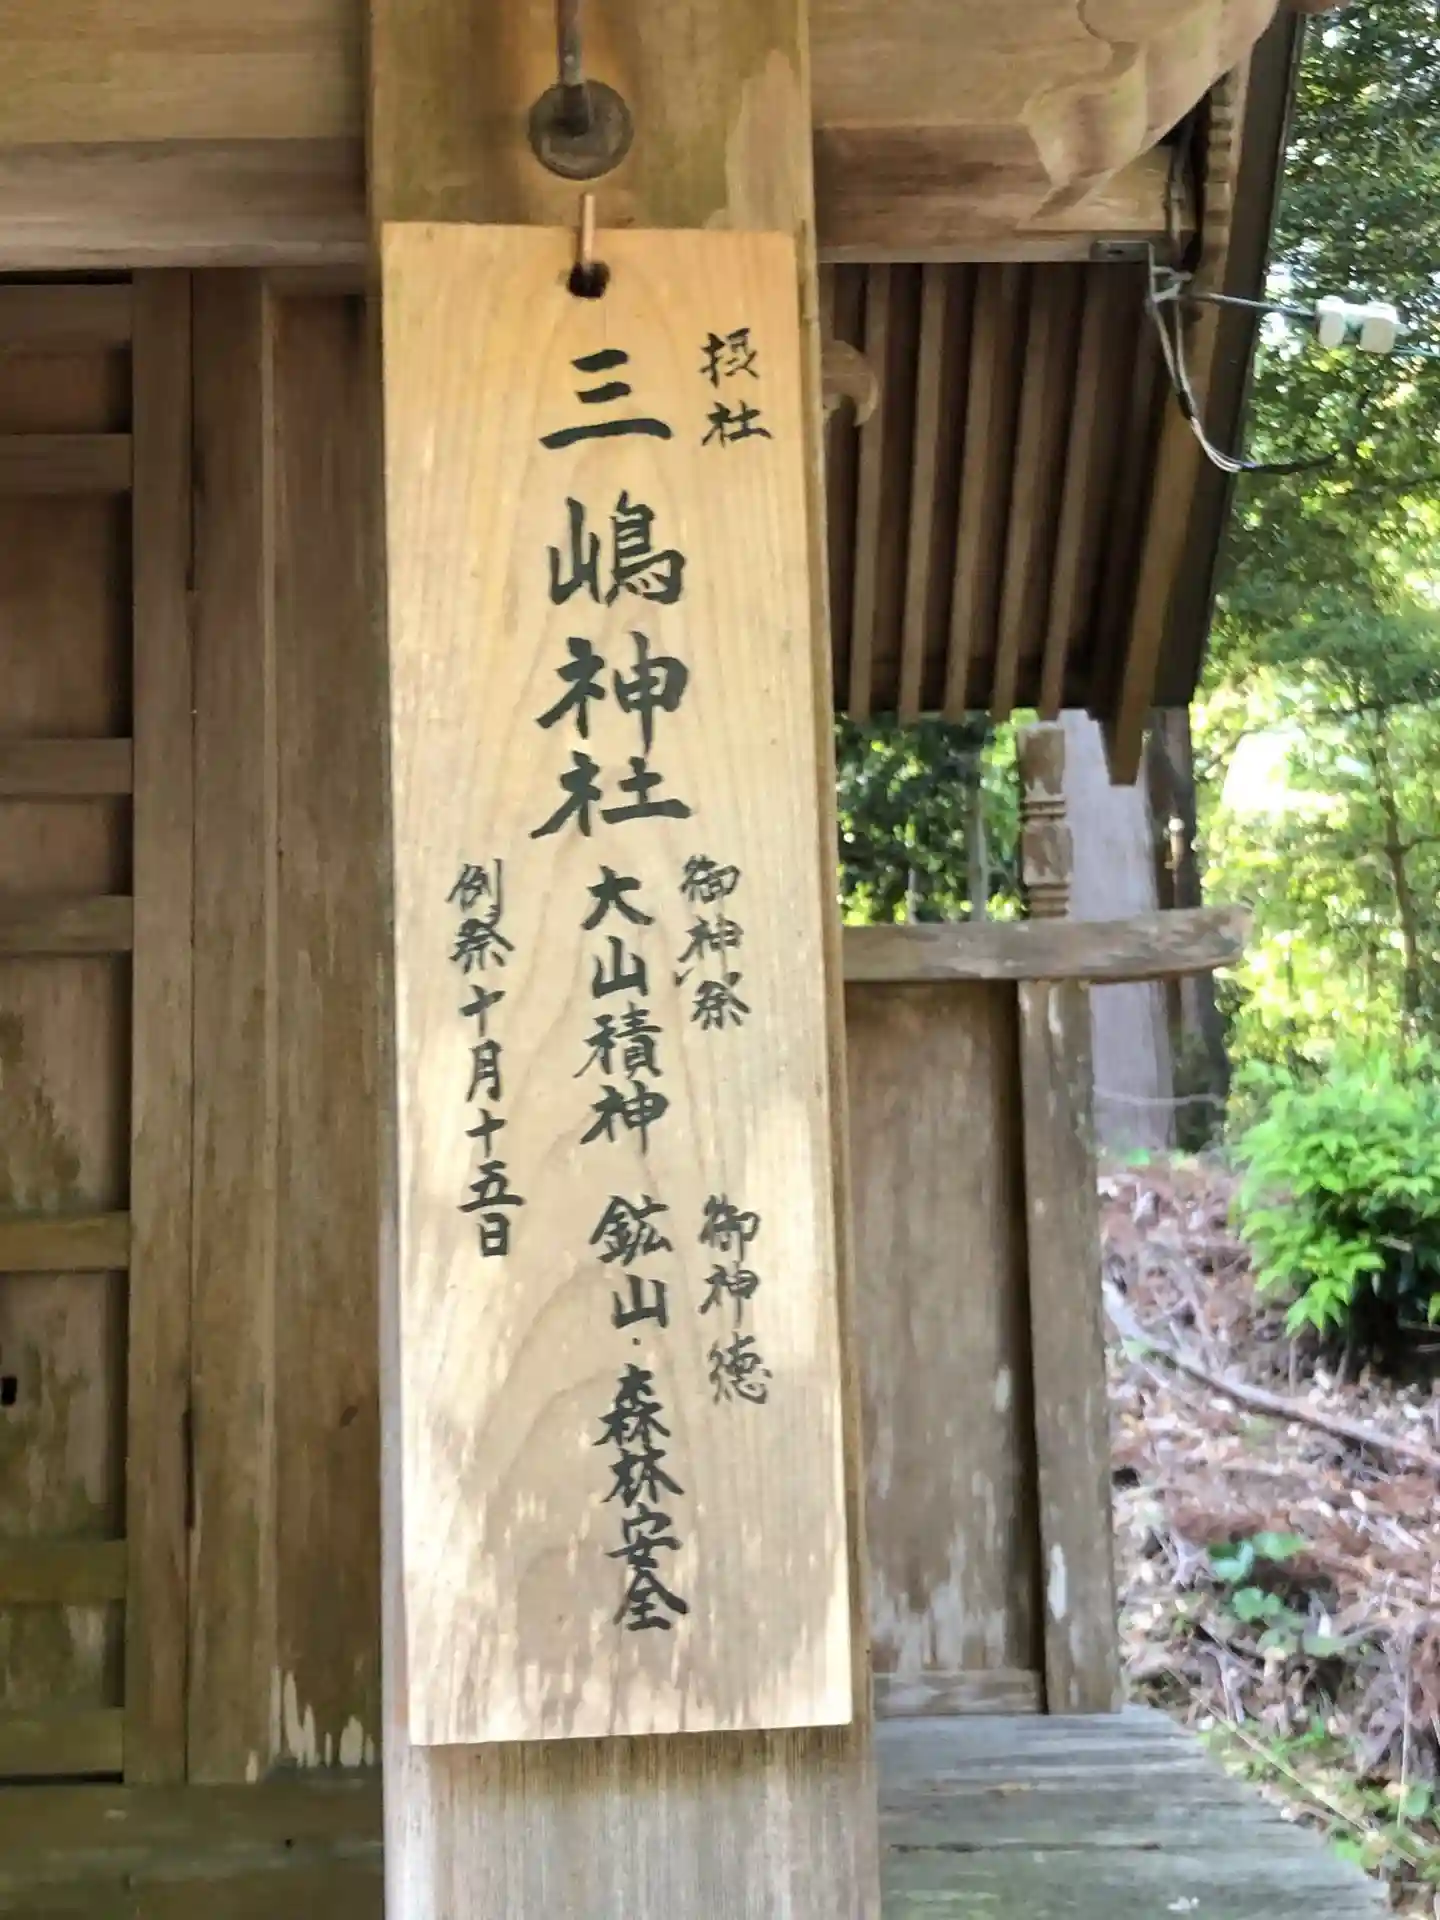 摂社
三嶋神社
御神祭
大山積神
例祭十月十五日
御神徳
鉱山・森林安全